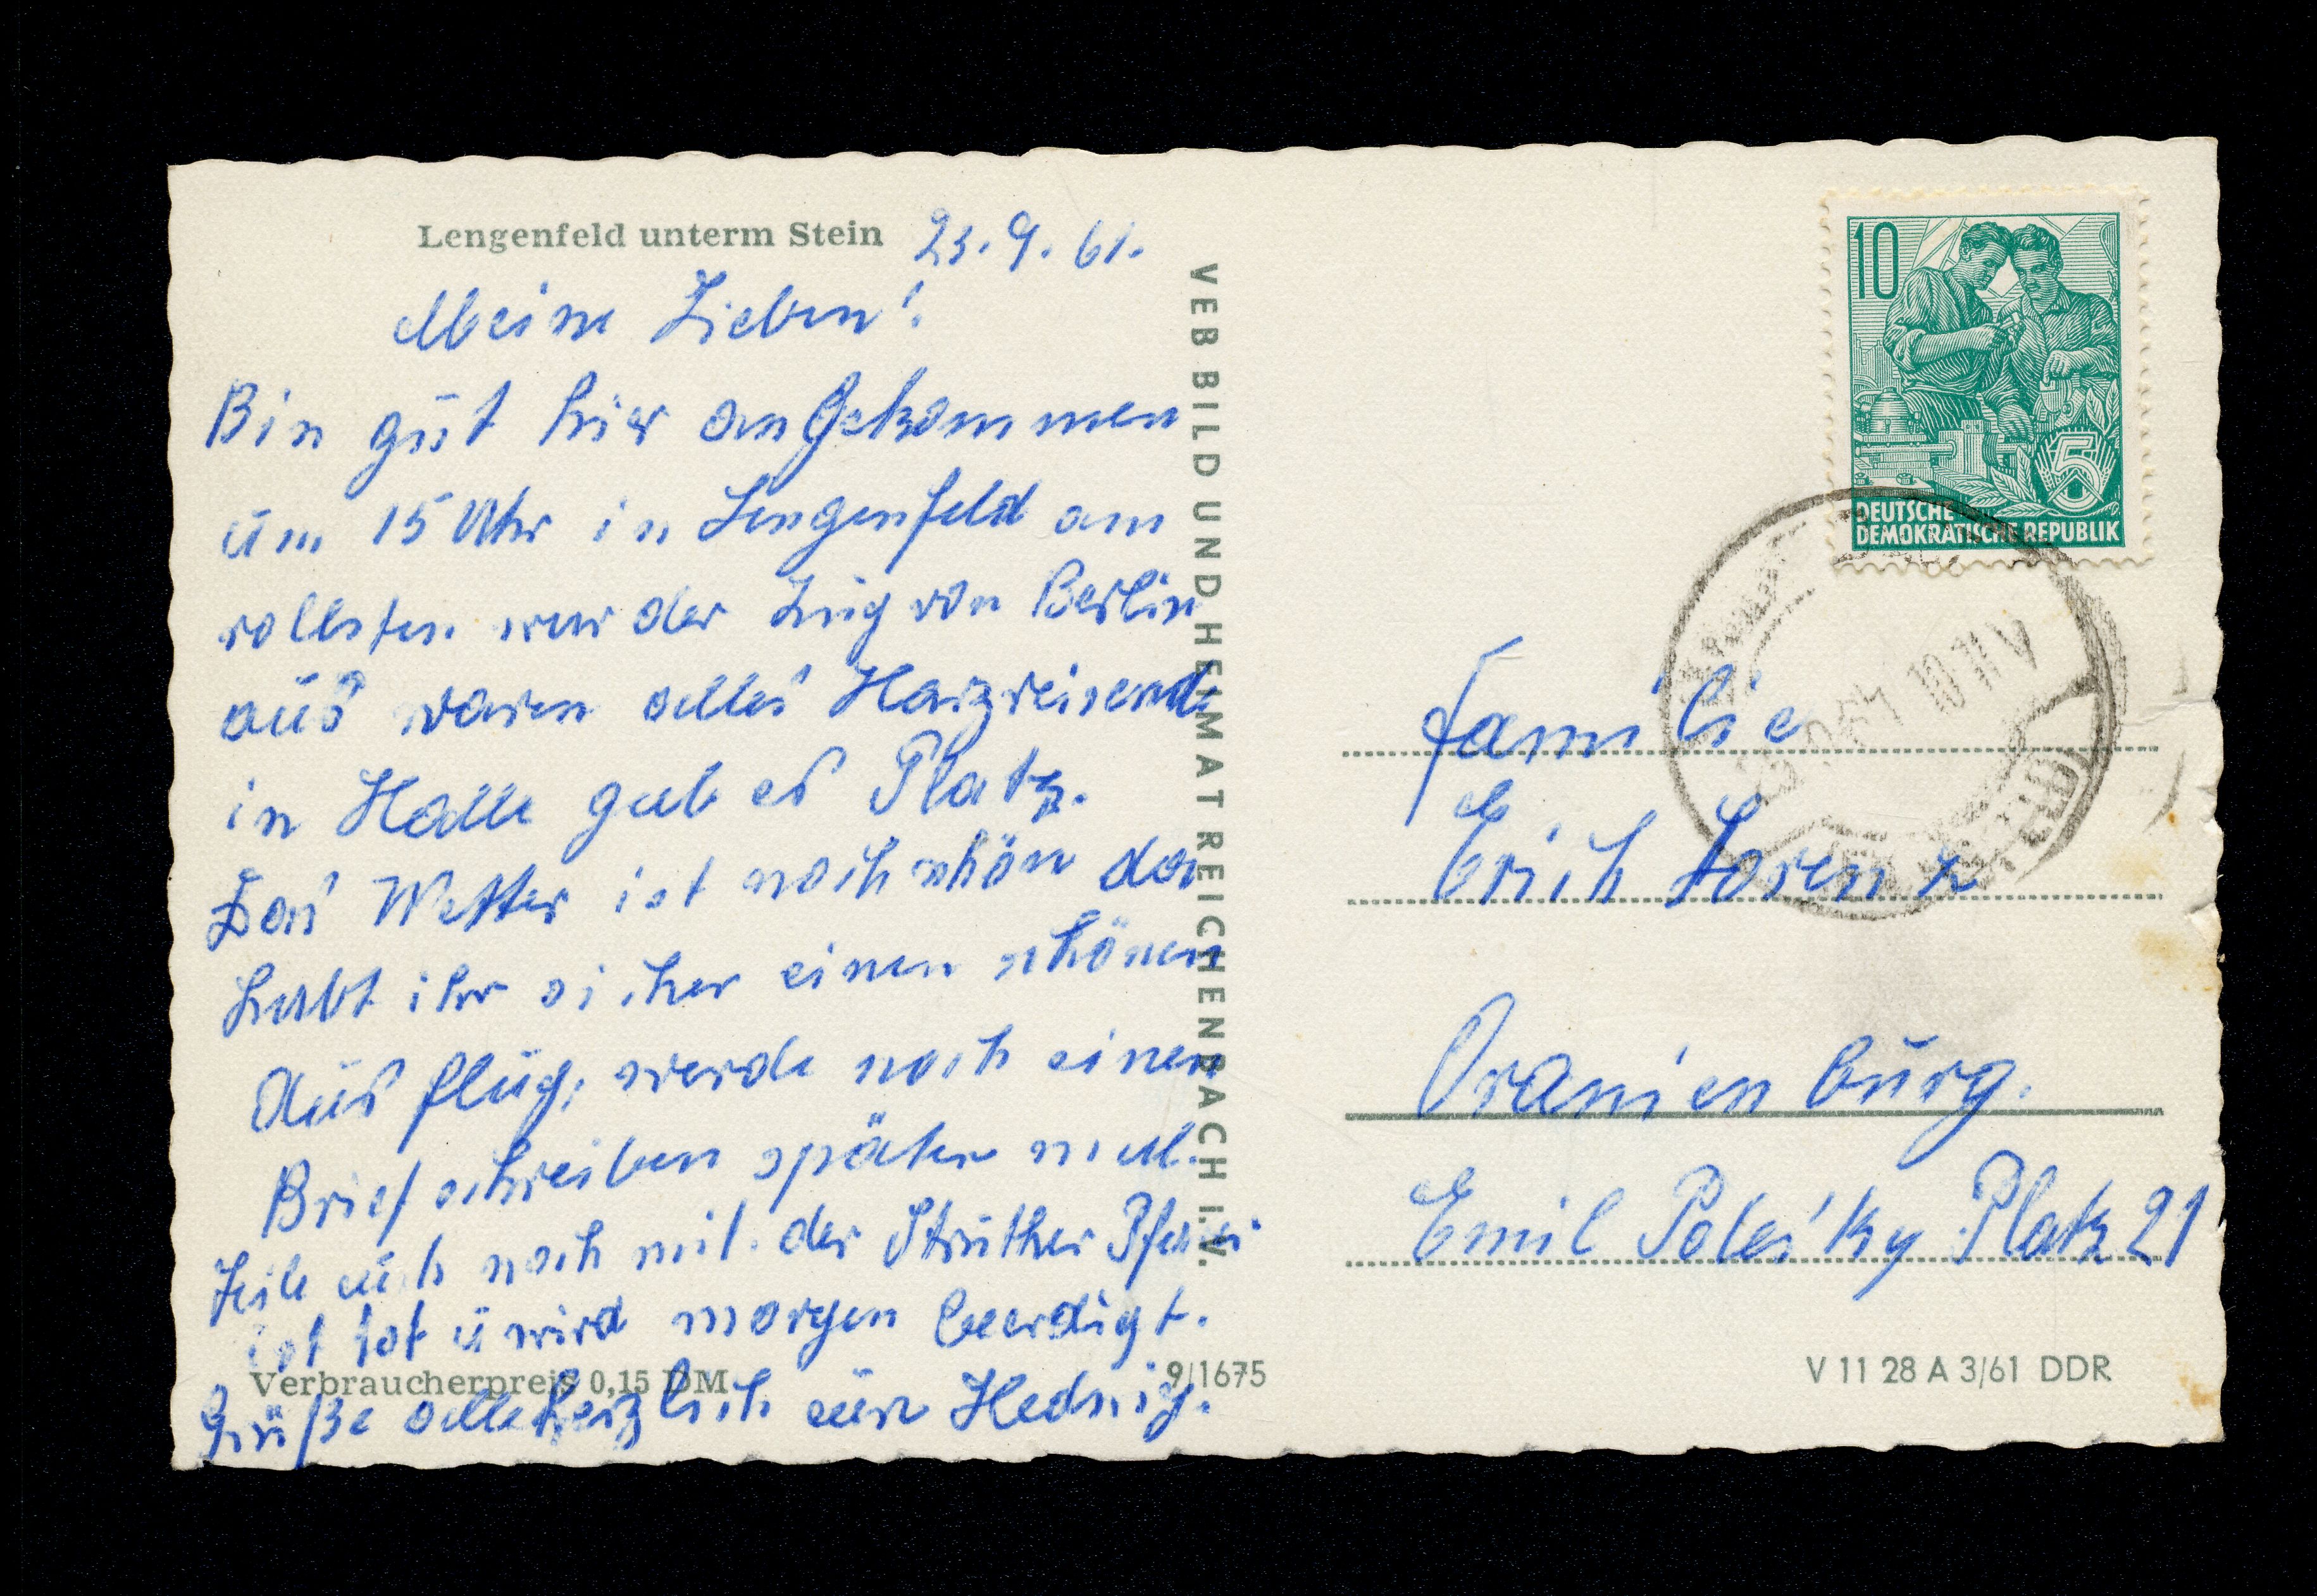 Lengenfeld unterm Stein 23.9.61.
Meine Lieben!
Bin gut hier angekommen
um 15 Uhr in Lengenfeld am
vollsten war der Zug von Berlin
aus waren alles Harzreisende
in Halle gab es Platz.
Das Wetter ist noch schön da
habt ihr sicher einen schönen
Ausflug, werde noch einen
Brief schreiben später mal.
Teile euch noch mit der Struther Pfarrer
ist tot u wird morgen beerdigt.
Grüße alle herzlich eure Hedwig.
Verbraucherpreis 0,15 DM
9/1675
VEB BILD UND HEIMAT REICHENBACH I.V.
10
5
DEUTSCHE
DEMOKRATISCHE REPUBLIK
Familie
Erich Lorenz
Oranienburg.
Emil Polesky Platz 21
V 11 28 A 3/61 DDR